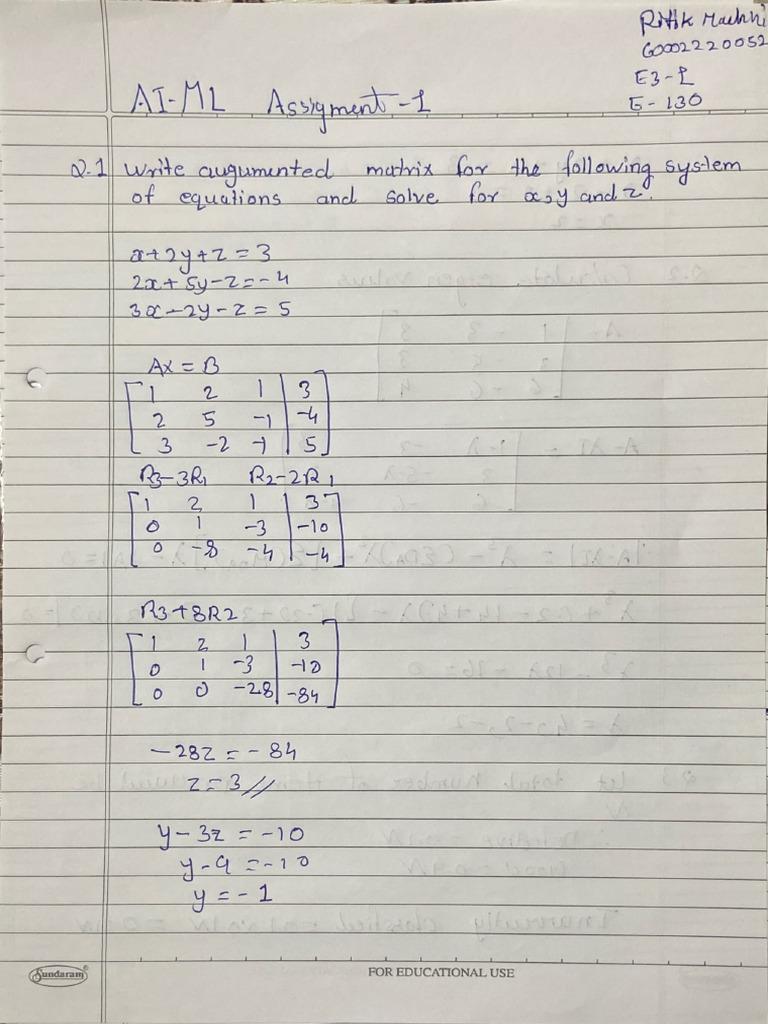 Ritik
60002220052
E3-1
E-130
AI-ML Assigment-1
Q.1 Write augumented matrix for the following system
of equations and solve for x, y and z.
x+2y+z = 3
2x+5y-z = -4
3x-2y-z = 5
AX = B
1 2 1 3
2 5 -1 -4
3 -2 -1 5
R3-3R1 R2-2R1
1 2 1 3
0 1 -3 -10
0 -8 -4 -4
R3+8R2
1 2 1 3
0 1 -3 -10
0 0 -28 -84
-28z = -84
z = 3 //
y-3z = -10
y-9 = -10
y = -1
Sundaram®
FOR EDUCATIONAL USE